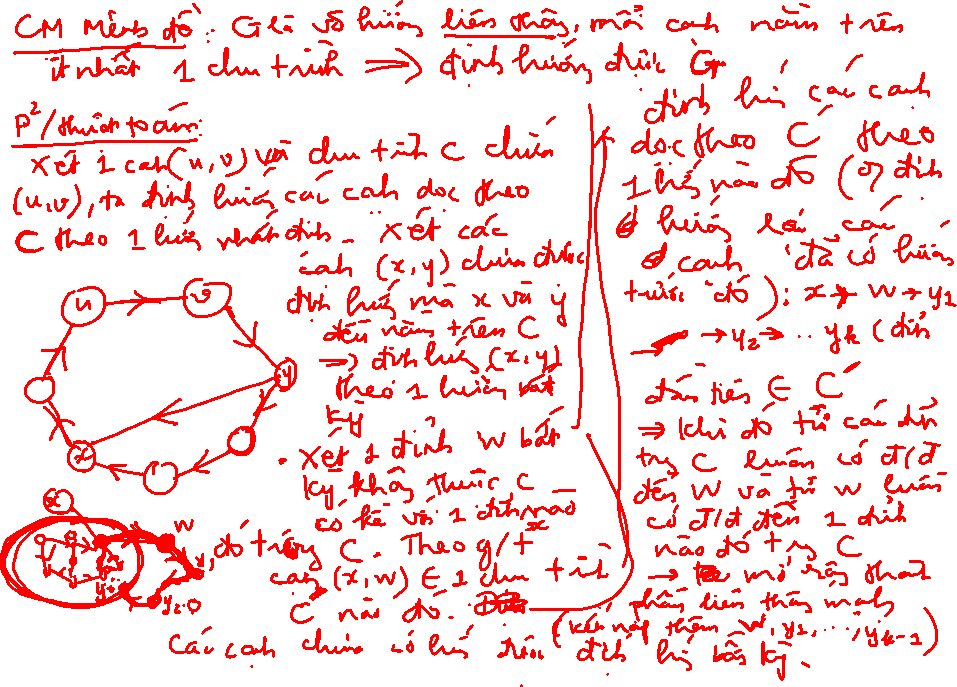 CM Mệnh đề: G là vô hướng liên thông, mỗi cạnh nằm trên
ít nhất 1 chu trình ⟹ định hướng được G
P²/thuật toán:
Xét 1 cạnh (u,v) và chu trình C chứa
(u,v), ta định hướng các cạnh dọc theo
C theo 1 hướng nhất định. Xét các
cạnh (x,y) chưa được
định hướng mà x và y
đều nằm trên C
⟹ định hướng (x,y)
theo 1 hướng bất
kỳ
. Xét 1 đỉnh w bất
kỳ không thuộc C
có kề với 1 đỉnh nào
đó x trong C. Theo g/t
cạnh (x,w) ∈ 1 chu trình
C' nào đó.
định hướng các cạnh
dọc theo C' theo
1 hướng nào đó (0 định
hướng lại các
cạnh đã có hướng
trước đó): x → w → y1
→ y2 → .. yk (đỉnh
đầu tiên ∈ C
⟹ khi đó từ các đỉnh
trg C luôn có đ/đ
đến w và từ w luôn
có đ/đ đến 1 đỉnh
nào đó trg C
→ mở rộng thành
phần liên thông mạnh
(kết nạp thêm w, y1, ..., yk-1)
Các cạnh chưa có hướng được định hướng bất kỳ.
u
v
y
x
x
w
y1
y2